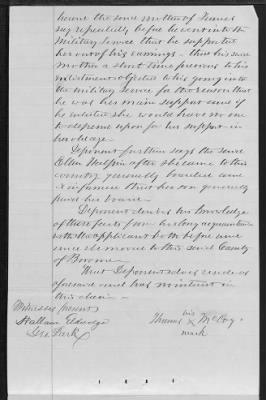 heard the said mother of James
say repeatedly before he went into the
Military Service that he supported
her out of his earnings - that his said
mother a short time previous to his
enlistment objected to his going into
the military service for the reason that
he was her main support and if
he enlisted she would have no one
to depend upon for her support in
her old age.
Deponent further says the said
Ellen after she came to this
country generally boarded and
that her son generally
paid her board.
Deponent derived his knowledge
of these facts from his long acquaintance
with the applicant both before and
since she moved to this said County
of Broome
That Deponent resides
and has no interest in
this claim -
Witnesses present
Hallam Eldredge
Geo Park
his
Thomas X McCoy
mark